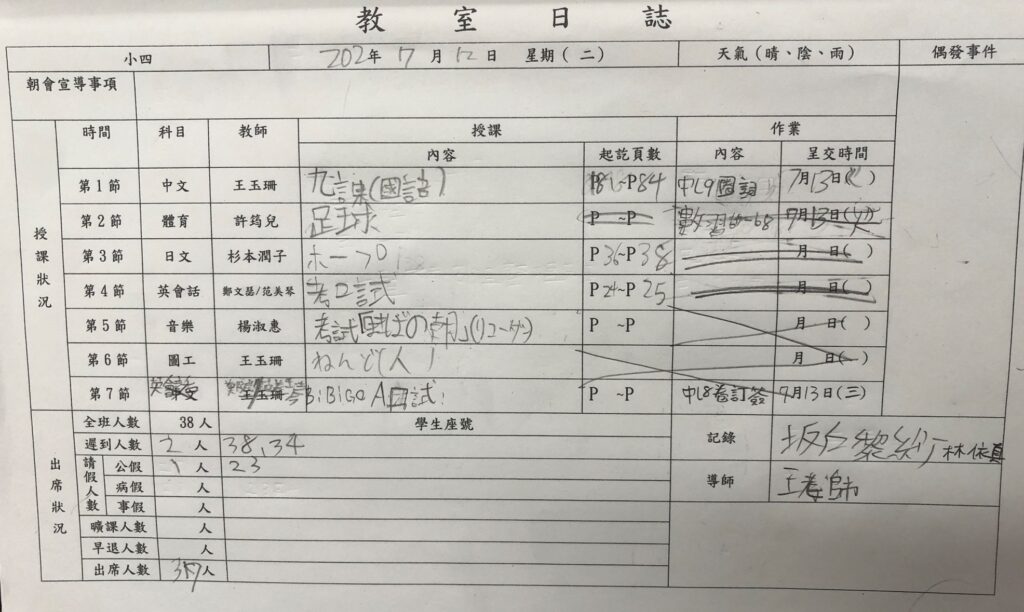 教室日誌
小四 202年7月12日 星期(二) 天氣(晴、陰、雨) 偶發事件
朝會宣導事項
授課狀況 時間 科目 教師 授課 作業
內容 起訖頁數 內容 呈交時間
第1節 中文 王玉珊 九課(國語) P82~P84 中L9圈詞 7月13日( )
第2節 體育 許筠兒 足球 P ~P 數習 -68 月13日( )
第3節 日文 杉本潤子 P36~P38 月 日( )
第4節 英會話 鄭文瑟/范美琴 考口試 P24~P25 月 日( )
第5節 音樂 楊淑惠 考試 (リコーダー) P ~P 月 日( )
第6節 圖工 王玉珊 ねんど 人 月 日( )
第7節 王玉珊 BiBiGO 口試 P ~P 中L8卷訂簽 9月13日(三)
出席狀況 全班人數 38人 學生座號
遲到人數 2人 38,34
請假人數 公假 1人 23
病假 人
事假 人
曠課人數 人
早退人數 人
出席人數 37人
記錄 林依真
導師 王老師